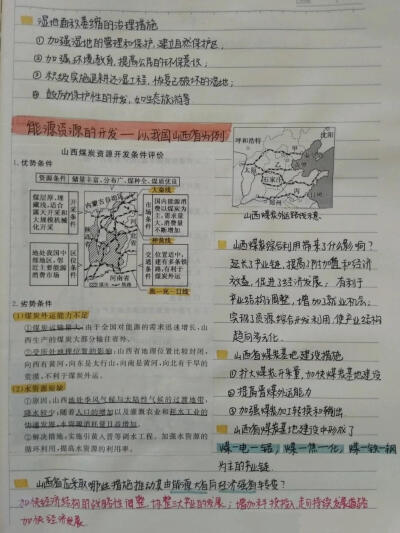 湿地面积萎缩的治理措施
① 加强湿地的管理和保护,建立自然保护区;
② 加强环境教育,提高公民的环保意识;
③ 积极实施退耕还湿工程,恢复已破坏的湿地;
④ 鼓励保护性的开发,如生态旅游等
能源资源的开发——以我国山西省为例
山西煤炭资源开发条件评价
1.优势条件
资源条件 储量丰富、分布广、煤种全、煤质优良
煤层厚、埋藏浅,适合露天开采和大规模机械化开采
开采条件
大秦线
市场条件
国内能源消费以煤炭为主,需求量大,消费量不断增加
内蒙古自治区
神黄线
地处我国中部地区,邻近主要能源消费市场
区位条件
交通条件
位置适中,建有多条铁路,有利于煤炭外运
河南省
呼和浩特
沈阳
甲
太原
石家庄
郑州
山西煤炭外运路线示意
2.劣势条件
(1)煤炭外运能力不足
①煤炭运输量大。由于全国对能源的需求迅速增长,山西生产的煤炭大部分输往省外。
②受所处地理位置的影响。山西省地理位置比较封闭,向西有黄河,向东是太行山,向南是黄河,向北有干旱的荒漠,不利于煤炭外运。
(2)水资源短缺
①原因:山西地处季风气候与大陆性气候的过渡地带,降水较少;随着人口的增加以及灌溉农业和耗水工业的快速发展,水资源消耗量日益增加。
②解决措施:实施引黄入晋等调水工程。加强水资源的循环利用,提高水资源的利用率。
山西煤炭综合利用带来了什么影响?
延长了产业链,提高了附加值和经济效益,促进了经济发展;有利于产业结构调整,增加了就业机会;实现了资源综合开发利用,使产业结构趋向多元化.
山西省煤炭基地建设措施
① 扩大煤炭开采量,加快煤炭基地建设
② 提高晋煤外运能力
③ 加强煤炭加工转换和输出
山西省煤炭基地建设中形成了
煤—电—铝,煤—焦—化,煤—铁—钢
为主的产业链.
山西省应采取哪些措施推动其由能源大省向经济强省转变?
加快经济结构的战略性调整,调整三大产业的发展;增加科技投入,走可持续发展道路
加快经济发展.